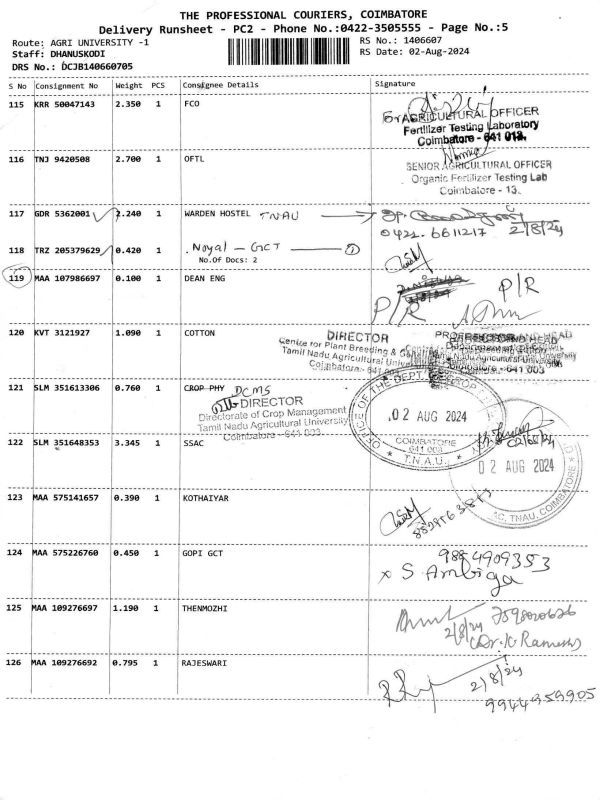 THE PROFESSIONAL COURIERS, COIMBATORE
Delivery Runsheet - PC2 - Phone No.:0422-3505555 - Page No.:5
Route: AGRI UNIVERSITY -1
RS No.: 1406607
Staff: DHANUSKODI
RS Date: 02-Aug-2024
DRS No.: DCJB140660705
S No Consignment No Weight PCS Consignee Details Signature
115 KRR 50047143 2.350 1 FCO
AGRICULTURAL OFFICER
Fertilizer Testing Laboratory
Coimbatore - 641 013.
116 TNJ 9420508 2.700 1 OFTL
SENIOR AGRICULTURAL OFFICER
Organic Fertilizer Testing Lab
Coimbatore - 13.
117 GDR 5362001 2.240 1 WARDEN HOSTEL TNAU
0421-6611217 2/8/24
118 TRZ 205379629 0.420 1 Noyal - GCT 1
No.Of Docs: 2
119 MAA 107986697 0.100 1 DEAN ENG
P/R P/R
120 KVT 3121927 1.090 1 COTTON
DIRECTOR
Centre for Plant Breeding &
Tamil Nadu Agricultural
Coimbatore - 641 003
PROFESSOR AND HEAD
Tamil Nadu Agricultural University
Coimbatore - 641 003
121 SLM 351613306 0.760 1 CROP PHY DCMS
DIRECTOR
Directorate of Crop Management
Tamil Nadu Agricultural University
Coimbatore - 641 003
OFFICE OF THE DEPT
02 AUG 2024
COIMBATORE
641 003
T.N.A.U.
122 SLM 351648353 3.345 1 SSAC
02/08/24
02 AUG 2024
AC, TNAU, COIMBATORE
123 MAA 575141657 0.390 1 KOTHAIYAR
124 MAA 575226760 0.450 1 GOPI GCT
9884909353
x S Ambiga
125 MAA 109276697 1.190 1 THENMOZHI
7598020626
2/8/24
(Dr. K Ramesh)
126 MAA 109276692 0.795 1 RAJESWARI
2/8/24
9944359905